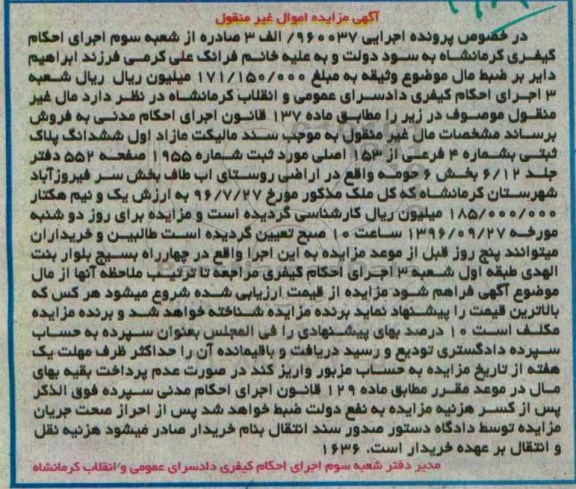 آگهی مزایده اموال غیر منقول
در خصوص پرونده اجرایی ۹۶۰۰۳۷/ الف ۳ صادره از شعبه سوم اجرای احکام
کیفری کرمانشاه به سود دولت و به علیه خانم فرانک علی کرمی فرزند ابراهیم
دایر بر ضبط مال موضوع وثیقه به مبلغ ۱۷۱/۱۵۰/۰۰۰ میلیون ریال ریال شعبه
۳ اجرای احکام کیفری دادسرای عمومی و انقلاب کرمانشاه در نظر دارد مال غیر
منقول موصوف در زیر را مطابق ماده ۱۳۷ قانون اجرای احکام مدنی به فروش
برساند مشخصات مال غیر منقول به موجب سند مالیکت مازاد اول ششدانگ پلاک
ثبتی بشماره ۴ فرعی از ۱۵۳ اصلی مورد ثبت شماره ۱۹۵۵ صفحه ۵۵۲ دفتر
جلد ۶/۱۲ بخش ۶ حومه واقع در اراضی روستای اب طاف بخش سر فیروزآباد
شهرستان کرمانشاه که کل ملک مذکور مورخ ۹۶/۷/۲۷ به ارزش یک و نیم هکتار
۱۸۵/۰۰۰/۰۰۰ میلیون ریال کارشناسی گردیده است و مزایده برای روز دو شنبه
مورخه ۱۳۹۶/۰۹/۲۷ ساعت ۱۰ صبح تعیین گردیده است طالبین و خریداران
میتوانند پنج روز قبل از موعد مزایده به این اجرا واقع در چهارراه بسیج بلوار بنت
الهدی طبقه اول شعبه ۳ اجرای احکام کیفری مراجعه تا ترتیب ملاحظه آنها از مال
موضوع آگهی فراهم شود مزایده از قیمت ارزیابی شده شروع میشود هر کس که
بالاترین قیمت را پیشنهاد نماید برنده مزایده شناخته خواهد شد و برنده مزایده
مکلف است ۱۰ درصد بهای پیشنهادی را فی المجلس بعنوان سپرده به حساب
سپرده دادگستری تودیع و رسید دریافت و باقیمانده آن را حداکثر ظرف مهلت یک
هفته از تاریخ مزایده به حساب مزبور واریز کند در صورت عدم پرداخت بقیه بهای
مال در موعد مقرر مطابق ماده ۱۲۹ قانون اجرای احکام مدنی سپرده فوق الذکر
پس از کسر هزنیه مزایده به نفع دولت ضبط خواهد شد پس از احراز صحت جریان
مزایده توسط دادگاه دستور صدور سند انتقال بنام خریدار صادر میشود هزنیه نقل
و انتقال بر عهده خریدار است. ۱۶۳۶
مدیر دفتر شعبه سوم اجرای احکام کیفری دادسرای عمومی و انقلاب کرمانشاه